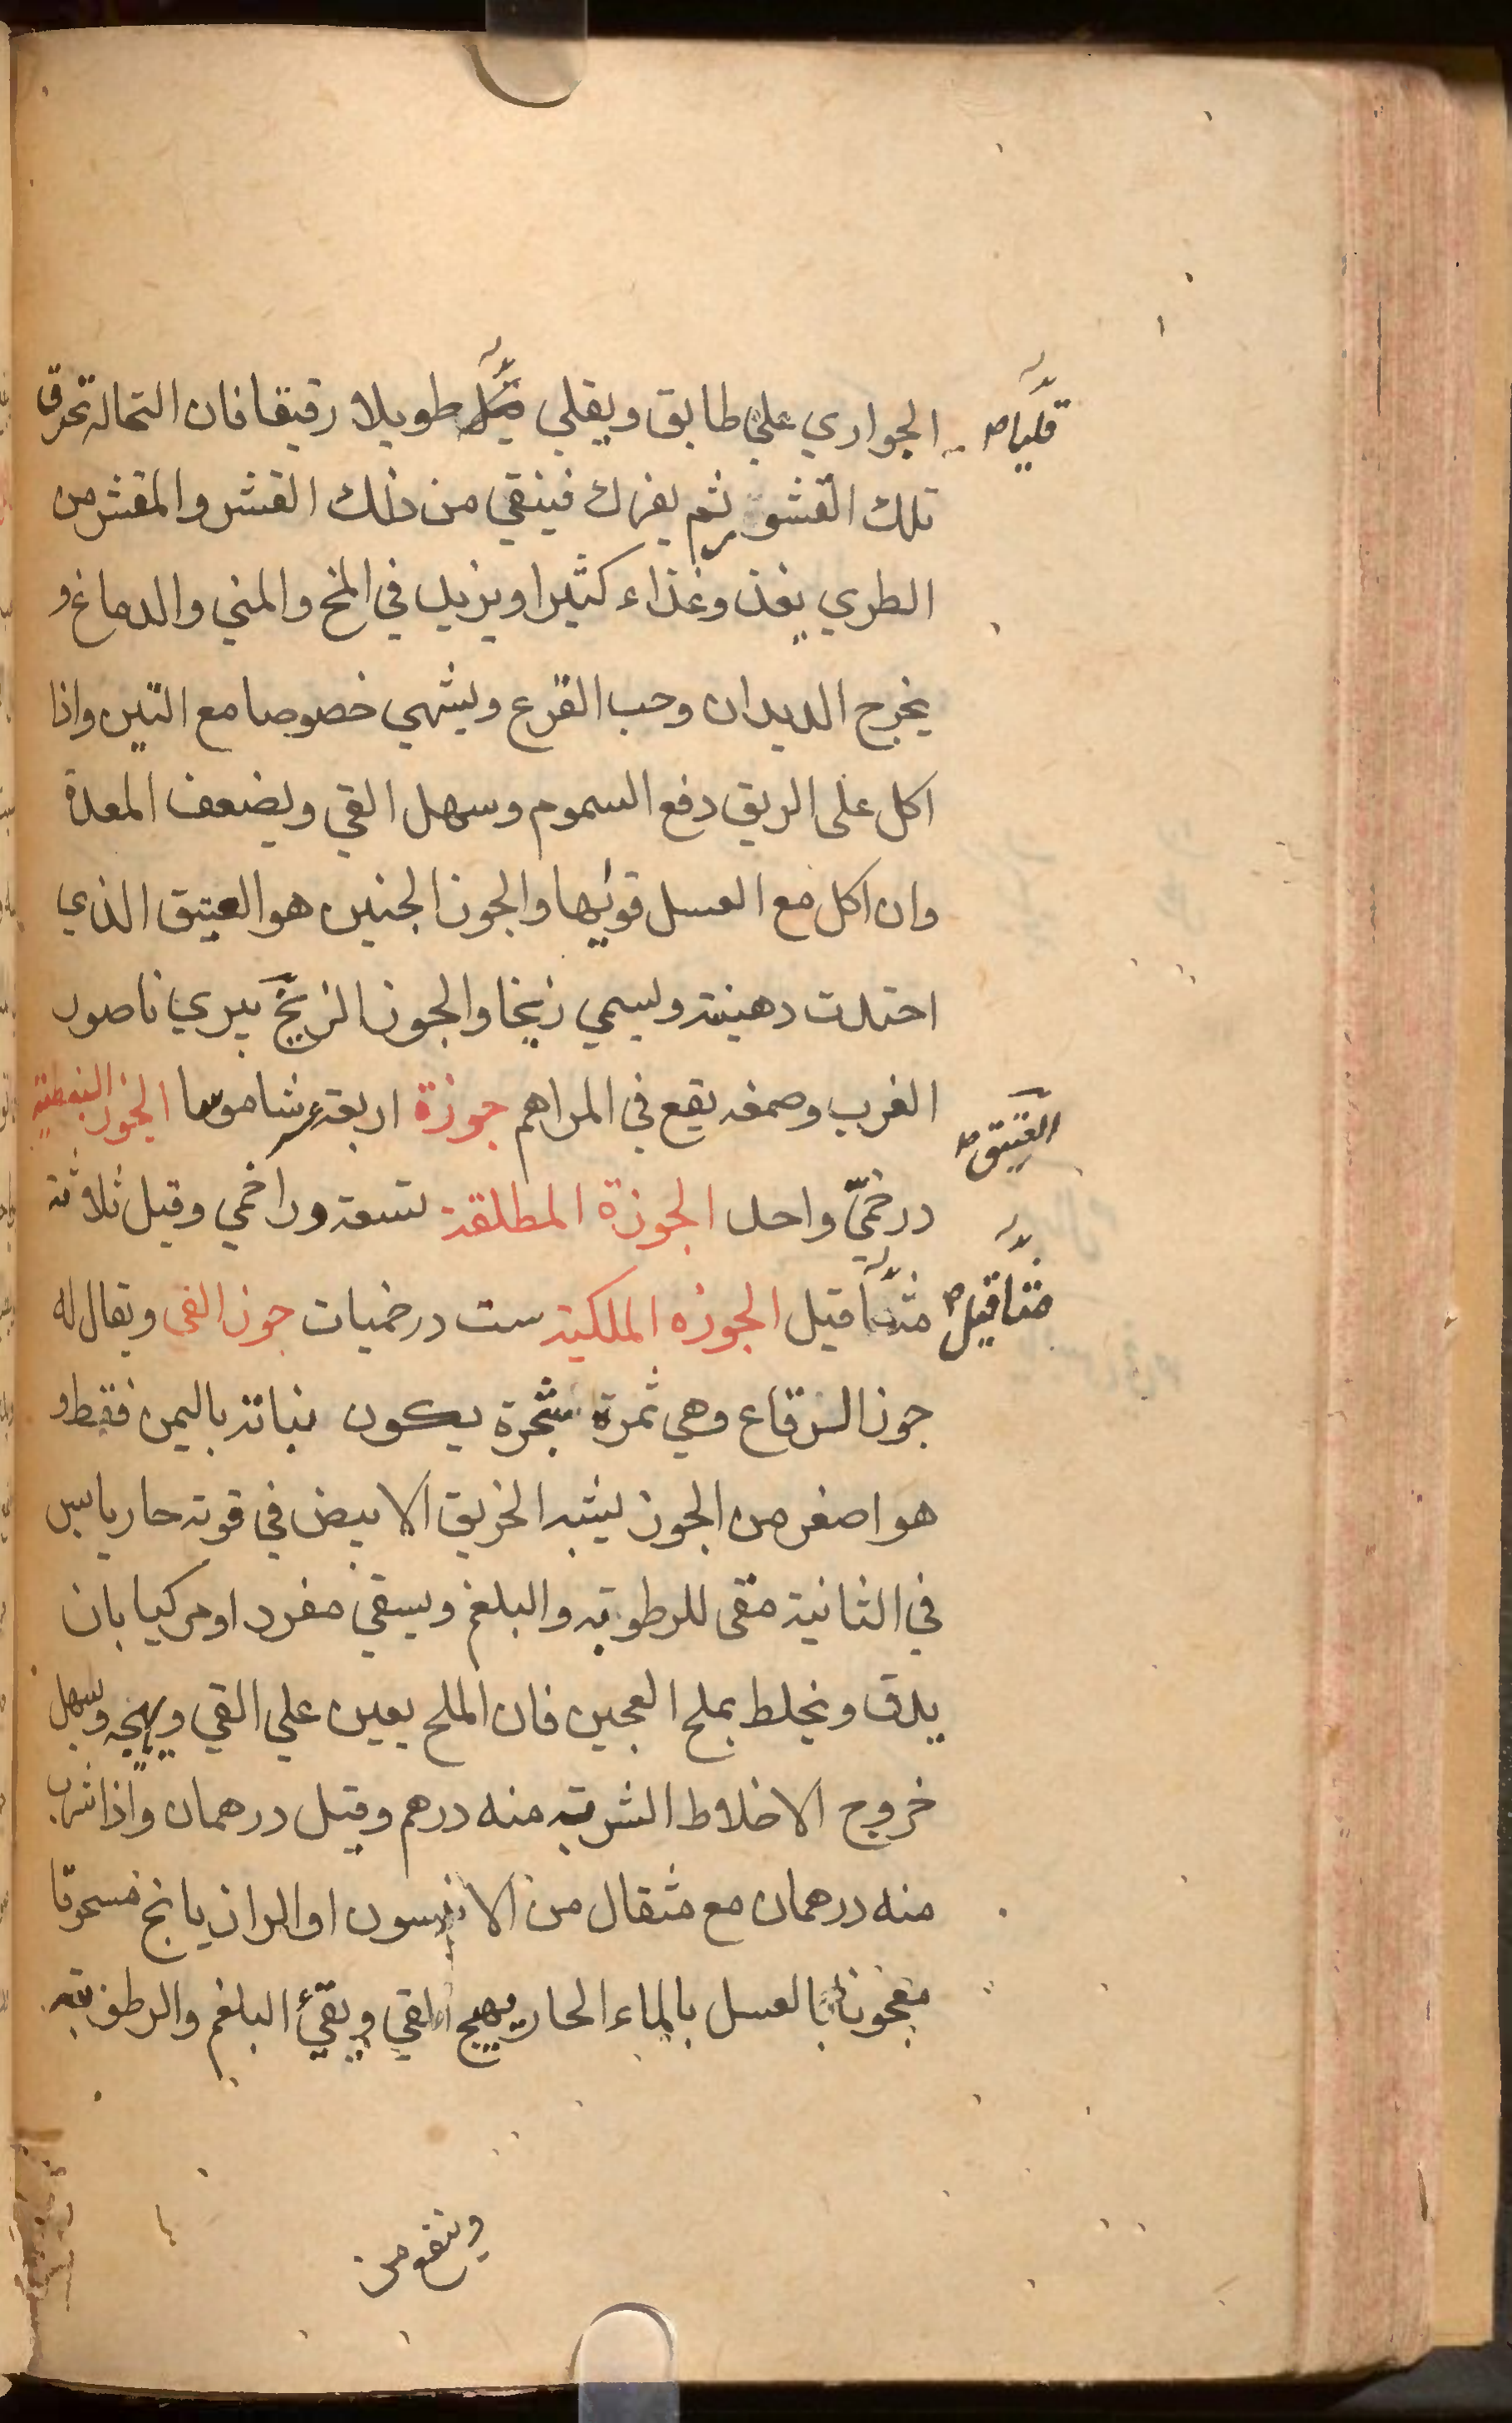 الجواري علي طابق ويقلي طويلا رقيقا فان النحالة تحرق
قليا صح
تلك القشور ثم يفرك فينقي من ذلك القشر والمقشر من
الطري يغذو غذاء كثيرا ويزيد في المخ والمني والدماغ و
يخرج الديدان وحب القرع ويشهي خصوصا مع التين واذا
اكل على الريق دفع السموم وسهل القي ويضعف المعدة
وان اكل مع العسل قويها والجوز الجنين هو العتيق الذي
احتدت دهنيته ويسمي زنخا والجوز الزنخ يبري ناصور
الغرب وصمغه يقع في المراهم جوزة اربعة عشر شاموسا الجوز النبطية
العتيق صح
درخمي واحد الجوزة المطلقة تسعة دراخمي وقيل ثلاثة
مثاقيل الجوزه الملكية ست درخميات جوز القي ويقال له
مثاقيل صح
جوز الرقاع وهي ثمرة شجرة يكون نباته باليمن فقط و
هو اصغر من الجوز يشبه الخربق الابيض في قوته حار يابس
في الثانية مقى للرطوبة والبلغم ويسقي مفرد او مركبا بان
يدق ويخلط بملح العجين فان الملح يعين علي القي ويهيجه ويسهل
خروج الاخلاط الشربة منه درهم وقيل درهمان واذا شرب
منه درهمان مع مثقال من الانيسون او الرازيانج مسحوقا
معجونا بالعسل بالماء الحار يهيج القي ويقئ البلغم والرطوبة
وينفع من